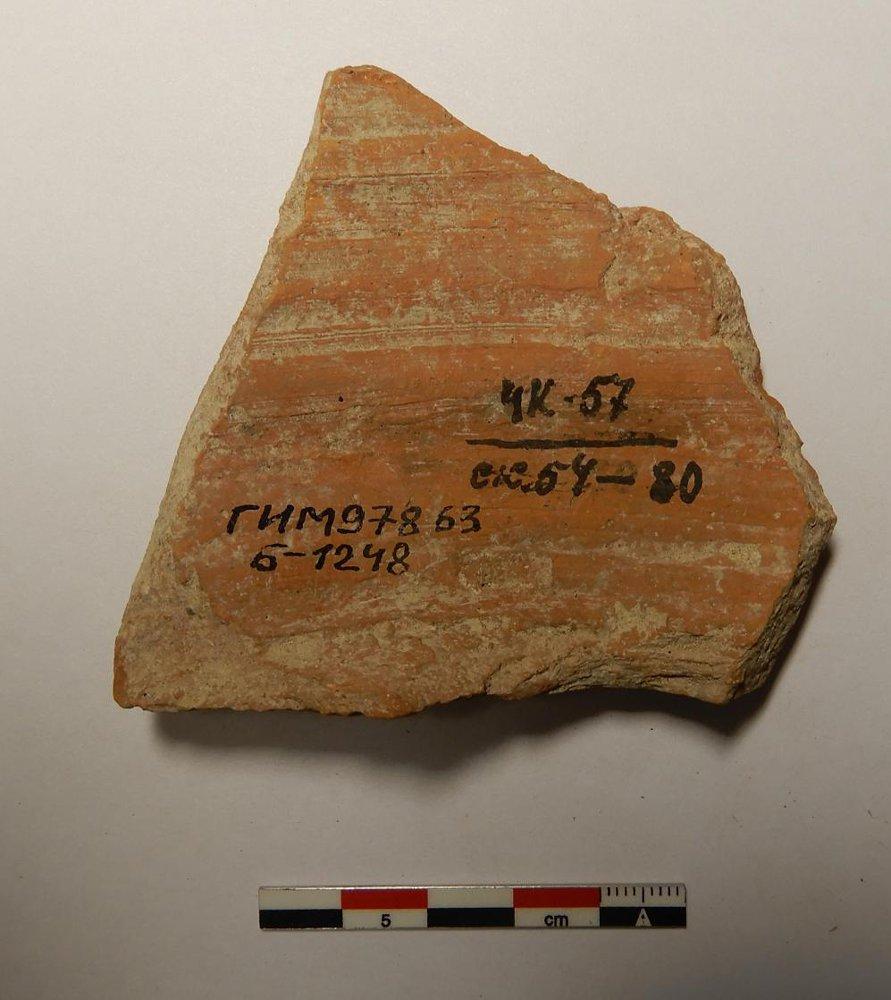 ЧК-57
ск.54-80
ГИМ97863
Б-1248
5 cm